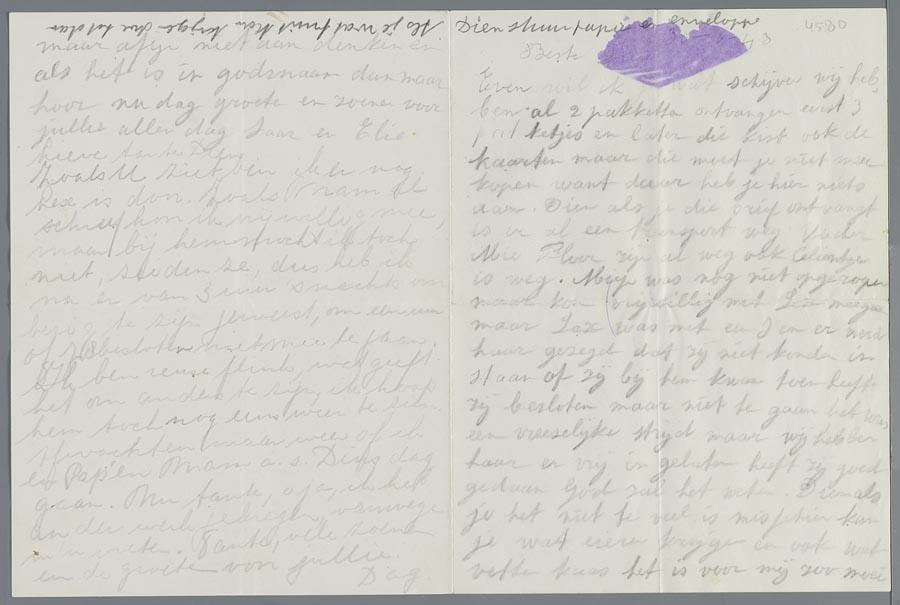 Dien stuur papier en enveloppe
4580
Beste
3
Even wil ik je wat schijven wij heb
ben al 2 pakketten ontvangen eerst 3
en later die kist ook de
kaarten maar die moet je niet meer
kopen want daar heb je hier niets
aan. Dien als je die brief ontvangt
is er al een transport weg. Vader
Mie Floor zijn al weg ook
is weg. was nog niet opgeroepen
maar kon vrijwillig met Lex meegaan
maar Lex was met een J en er werd
haar gezegd dat zij niet konden in
staan of zij bij hem kwam toen heeft
zij besloten maar niet te gaan het was
een vreeselijke strijd maar wij hebben
haar er vrij in gelaten heeft zij goed
gedaan God zal het weten. Dien als
je het niet te veel is misschien kan
je wat eieren krijgen en ook wat
vette kaas het is voor mij zoo moei
Als je wat fruit kan krijgen
maar altijd niet aan denken en
als het is in godsnaam dan maar
hoor nu dag groete en zoenen voor
jullie allen dag Saar en Elie
Lieve tante Dien
Zoals U ziet ben ik er nog
Lex is don. Zoals Mam al
schreef kon ik vrijwillig mee,
maar bij hem mocht ik toch
niet, zeiden ze, dus heb ik
na er van 3 uur 's nachts om
bezig te zijn geweest, om een uur
of besloten niet mee te gaan.
Ik ben reuze flink, wat geeft
het om anders te zijn, ik hoop
hem toch nog eens weer te zien.
Afwachten maar weer of ik
en Pap en Mam a.s. Dinsdag
gaan. Nu tante, o ja, ik heb
ander werk gekregen, vanwege
m'n voeten. Tante, vele zoenen
en de groeten voor jullie.
Dag.